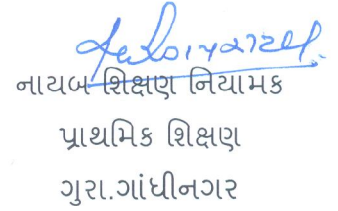 નાયબ શિક્ષણ નિયામક
પ્રાથમિક શિક્ષણ
ગુરા.ગાંધીનગર